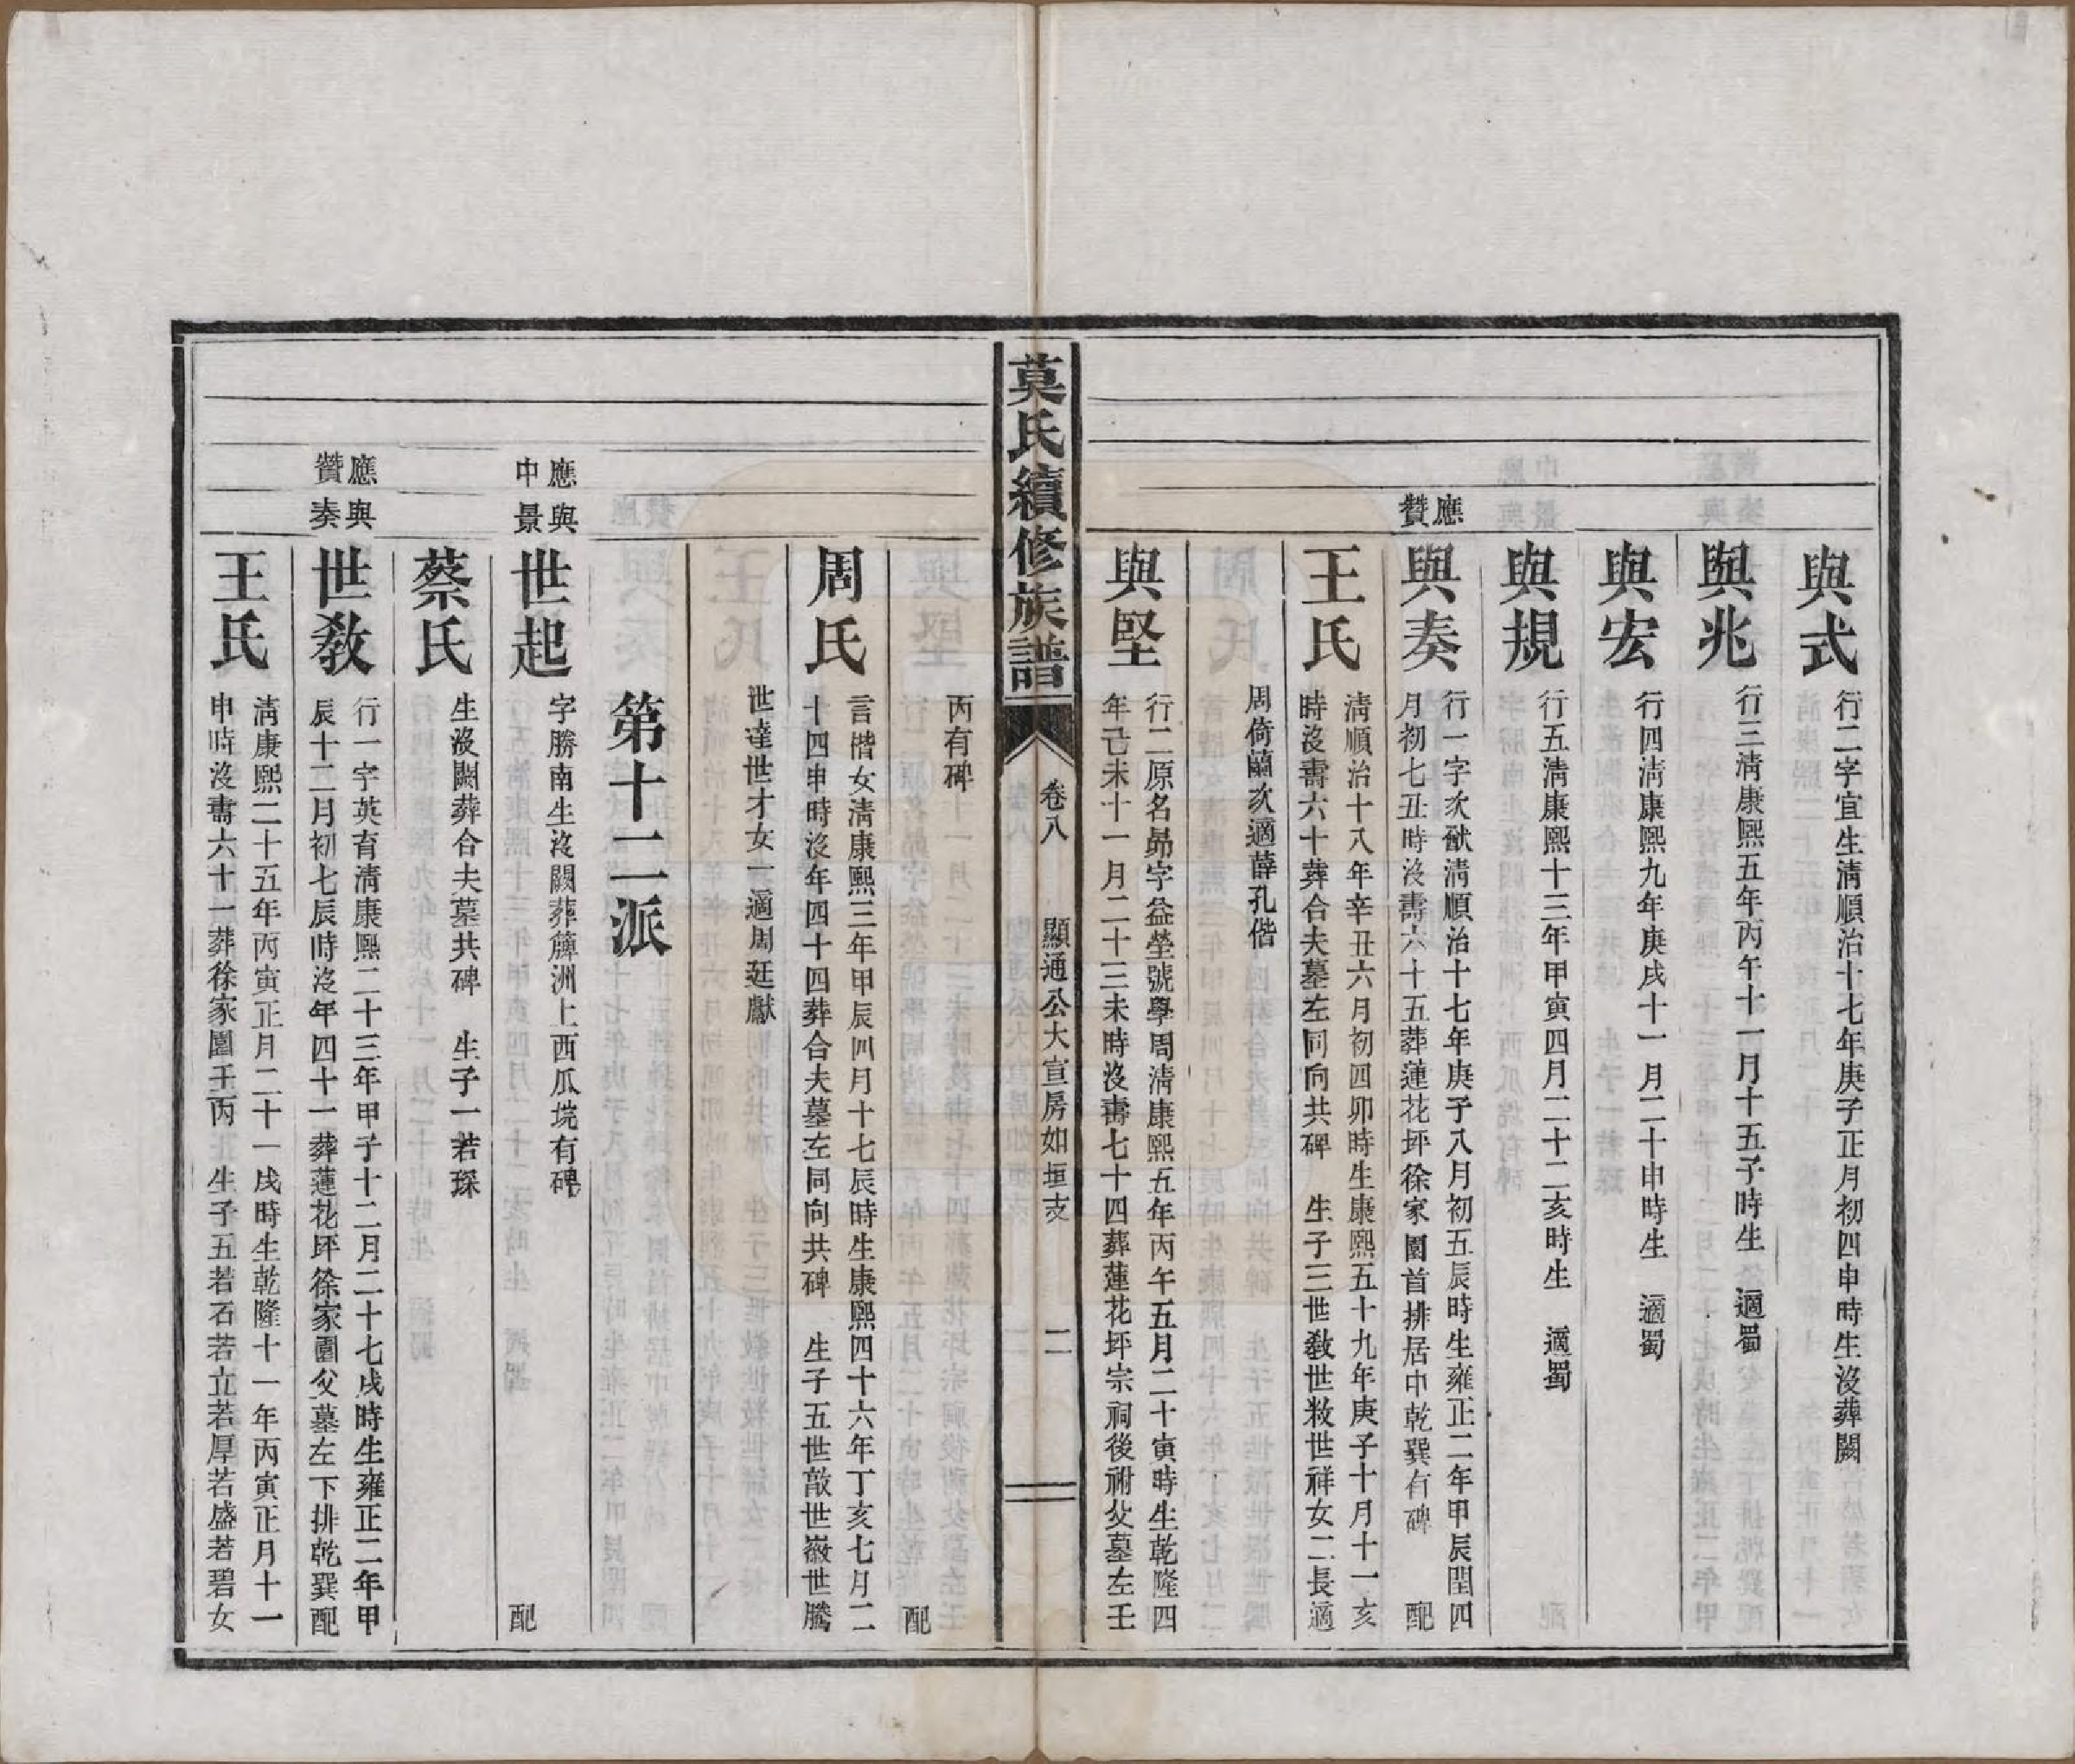 與式
行二字宜生清順治十七年庚子正月初四申時生沒葬闕
與兆
行三清康熙五年丙午十一月十五子時生 適蜀
與宏
行四清康熙九年庚戌十一月二十申時生 適蜀
與規
行五清康熙十三年甲寅四月二十二亥時生 適蜀
應贊
與奏
行一字次猷清順治十七年庚子八月初五辰時生雍正二年甲辰閏四
月初七丑時沒壽六十五葬蓮花坪徐家園首排居中乾巽有碑 配
王氏
清順治十八年辛丑六月初四卯時生康熙五十九年庚子十月十一亥
時沒壽六十葬合夫墓左同向共碑 生子三世敎世敉世祥女二長適
周倚蘭次適薛孔偕
與堅
行二原名昴字益瑩號學周清康熙五年丙午五月二十寅時生乾隆四
年己未十一月二十三未時沒壽七十四葬蓮花坪宗祠後祔父墓左壬
莫氏續修族譜 卷八 顯通公大宣房如垣支 二
丙有碑 配
周氏
言偕女清康熙三年甲辰四月十七辰時生康熙四十六年丁亥七月二
十四申時沒年四十四葬合夫墓左同向共碑 生子五世敿世嶶世騰
世達世才女一適周廷獻
第十二派
應中
與景
世起
字勝南生沒闕葬簰洲上西瓜垸有碑 配
蔡氏
生沒闕葬合夫墓共碑 生子一若琛
應贊
與奏
世敎
行一字英育清康熙二十三年甲子十二月二十七戌時生雍正二年甲
辰十二月初七辰時沒年四十一葬蓮花坪徐家園父墓左下排乾巽配
王氏
清康熙二十五年丙寅正月二十一戌時生乾隆十一年丙寅正月十一
申時沒壽六十一葬徐家園壬丙 生子五若石若立若厚若盛若碧女